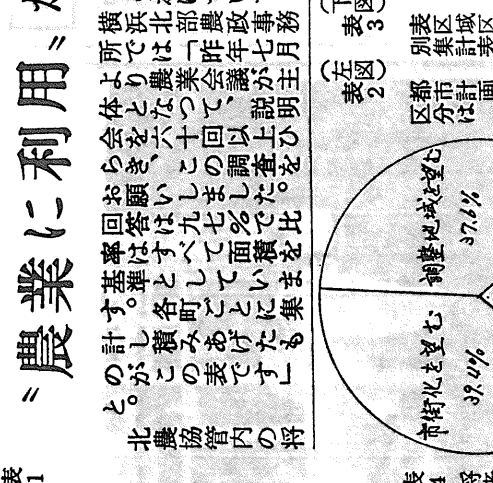 〃農業に利用〃
横浜北部農政事務
所では「昨年七月
より農業会議が主
体となって、説明
会を六十回以上ひ
らき、この調査を
お願いしました。
回答は九七%で比
率はすべて面積を
基準としていま
す。各町ごとに集
計し積みあげたも
のがこの表です」
と。
北農協管内の将
表3
(左図)
表2
都市計画
区分は
調整地域を望む
37.6%
市街化を望む
39.4%
表1
表4